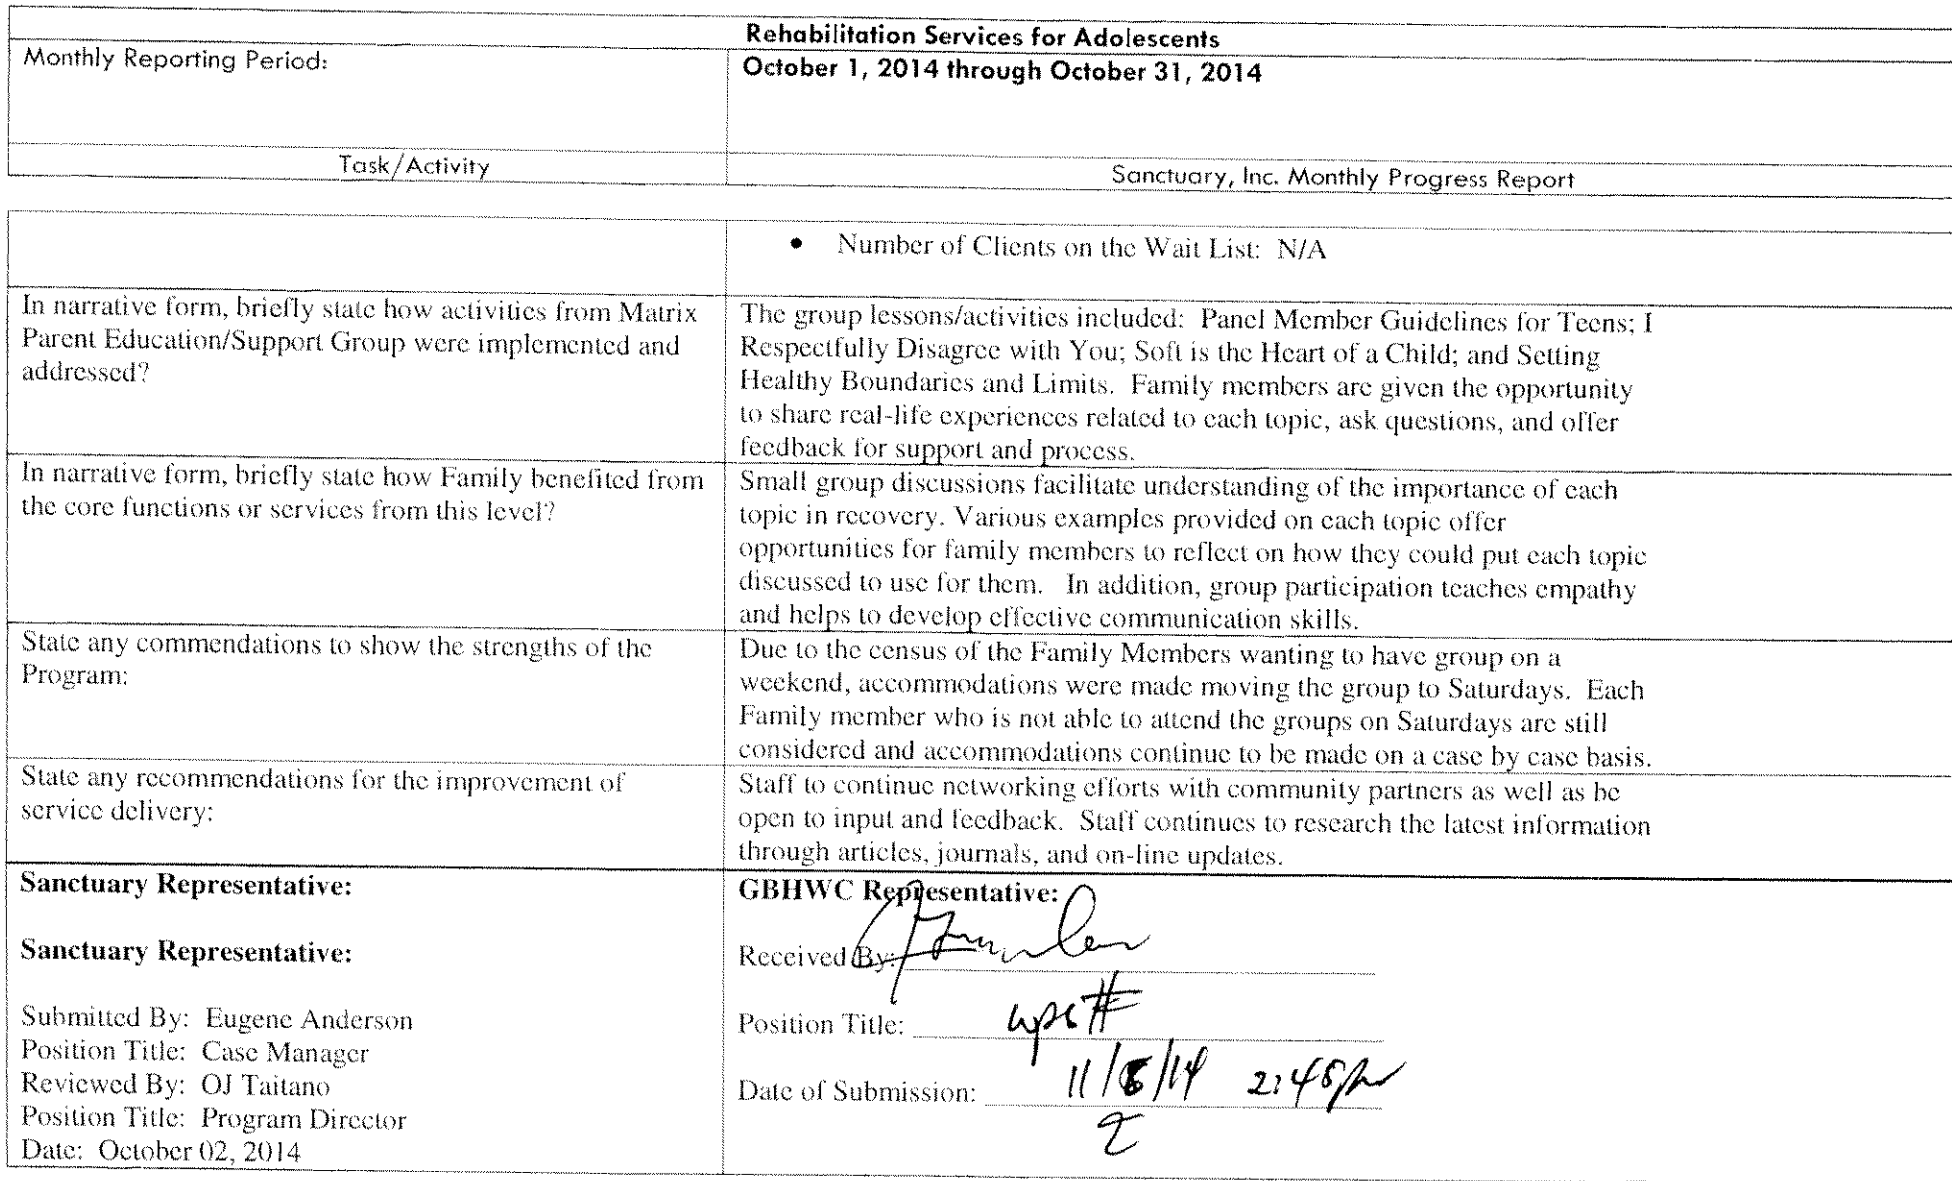 Rehabilitation Services for Adolescents
Monthly Reporting Period:
October 1, 2014 through October 31, 2014
Task/Activity
Sanctuary, Inc. Monthly Progress Report
• Number of Clients on the Wait List: N/A
In narrative form, briefly state how activities from Matrix
Parent Education/Support Group were implemented and
addressed?
The group lessons/activities included: Panel Member Guidelines for Teens; I
Respectfully Disagree with You; Soft is the Heart of a Child; and Setting
Healthy Boundaries and Limits. Family members are given the opportunity
to share real-life experiences related to each topic, ask questions, and offer
feedback for support and process.
In narrative form, briefly state how Family benefited from
the core functions or services from this level?
Small group discussions facilitate understanding of the importance of each
topic in recovery. Various examples provided on each topic offer
opportunities for family members to reflect on how they could put each topic
discussed to use for them. In addition, group participation teaches empathy
and helps to develop effective communication skills.
State any commendations to show the strengths of the
Program:
Due to the census of the Family Members wanting to have group on a
weekend, accommodations were made moving the group to Saturdays. Each
Family member who is not able to attend the groups on Saturdays are still
considered and accommodations continue to be made on a case by case basis.
State any recommendations for the improvement of
service delivery:
Staff to continue networking efforts with community partners as well as be
open to input and feedback. Staff continues to research the latest information
through articles, journals, and on-line updates.
Sanctuary Representative:
Sanctuary Representative:
Submitted By: Eugene Anderson
Position Title: Case Manager
Reviewed By: OJ Taitano
Position Title: Program Director
Date: October 02, 2014
GBHWC Representative:
Received By:
Position Title:
Date of Submission: